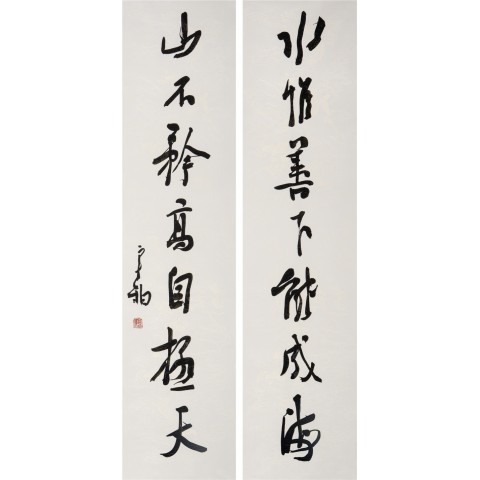 水惟善下能成海
山不矜高自極天